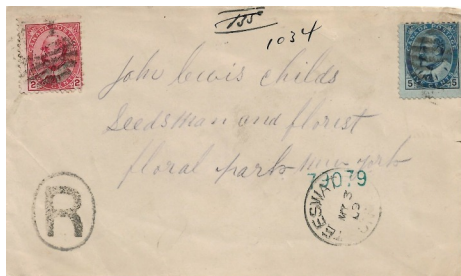 1034
2 2
5 5
John Lewis Childs
Seedsman and florist
floral park new york
79079
R